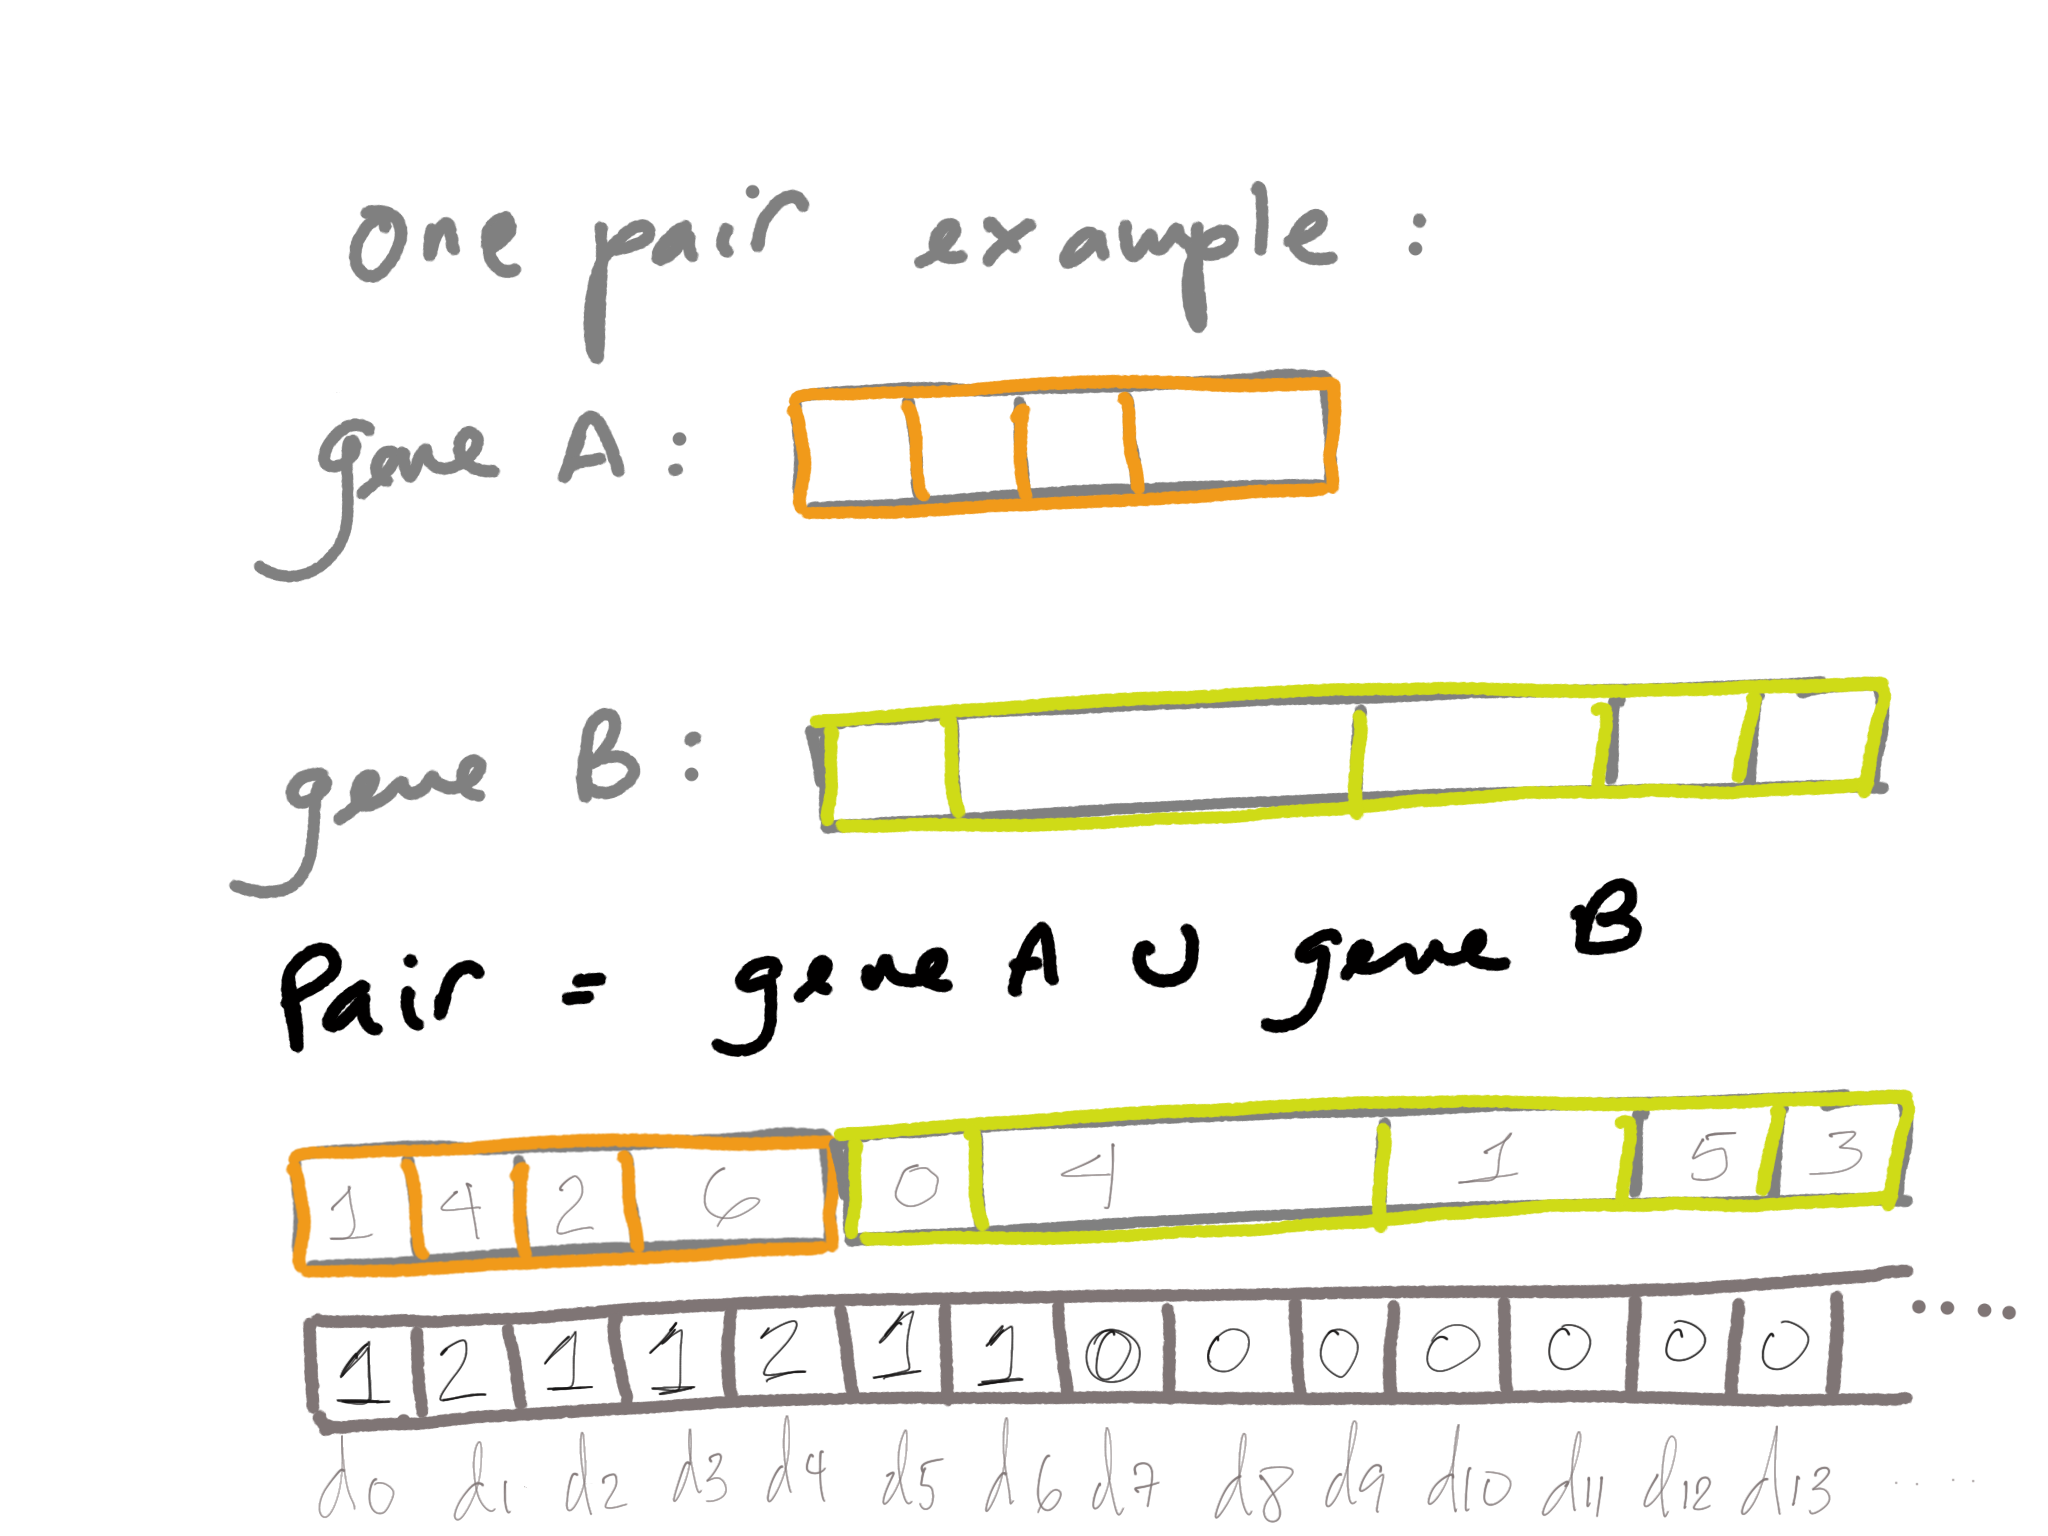 One pair example:
gene A:
gene B:
Pair = gene A ∪ gene B
1 4 2 6 0 4 1 5 3
1 2 1 1 2 1 1 0 0 0 0 0 0 0 ....
d0 d1 d2 d3 d4 d5 d6 d7 d8 d9 d10 d11 d12 d13 .....